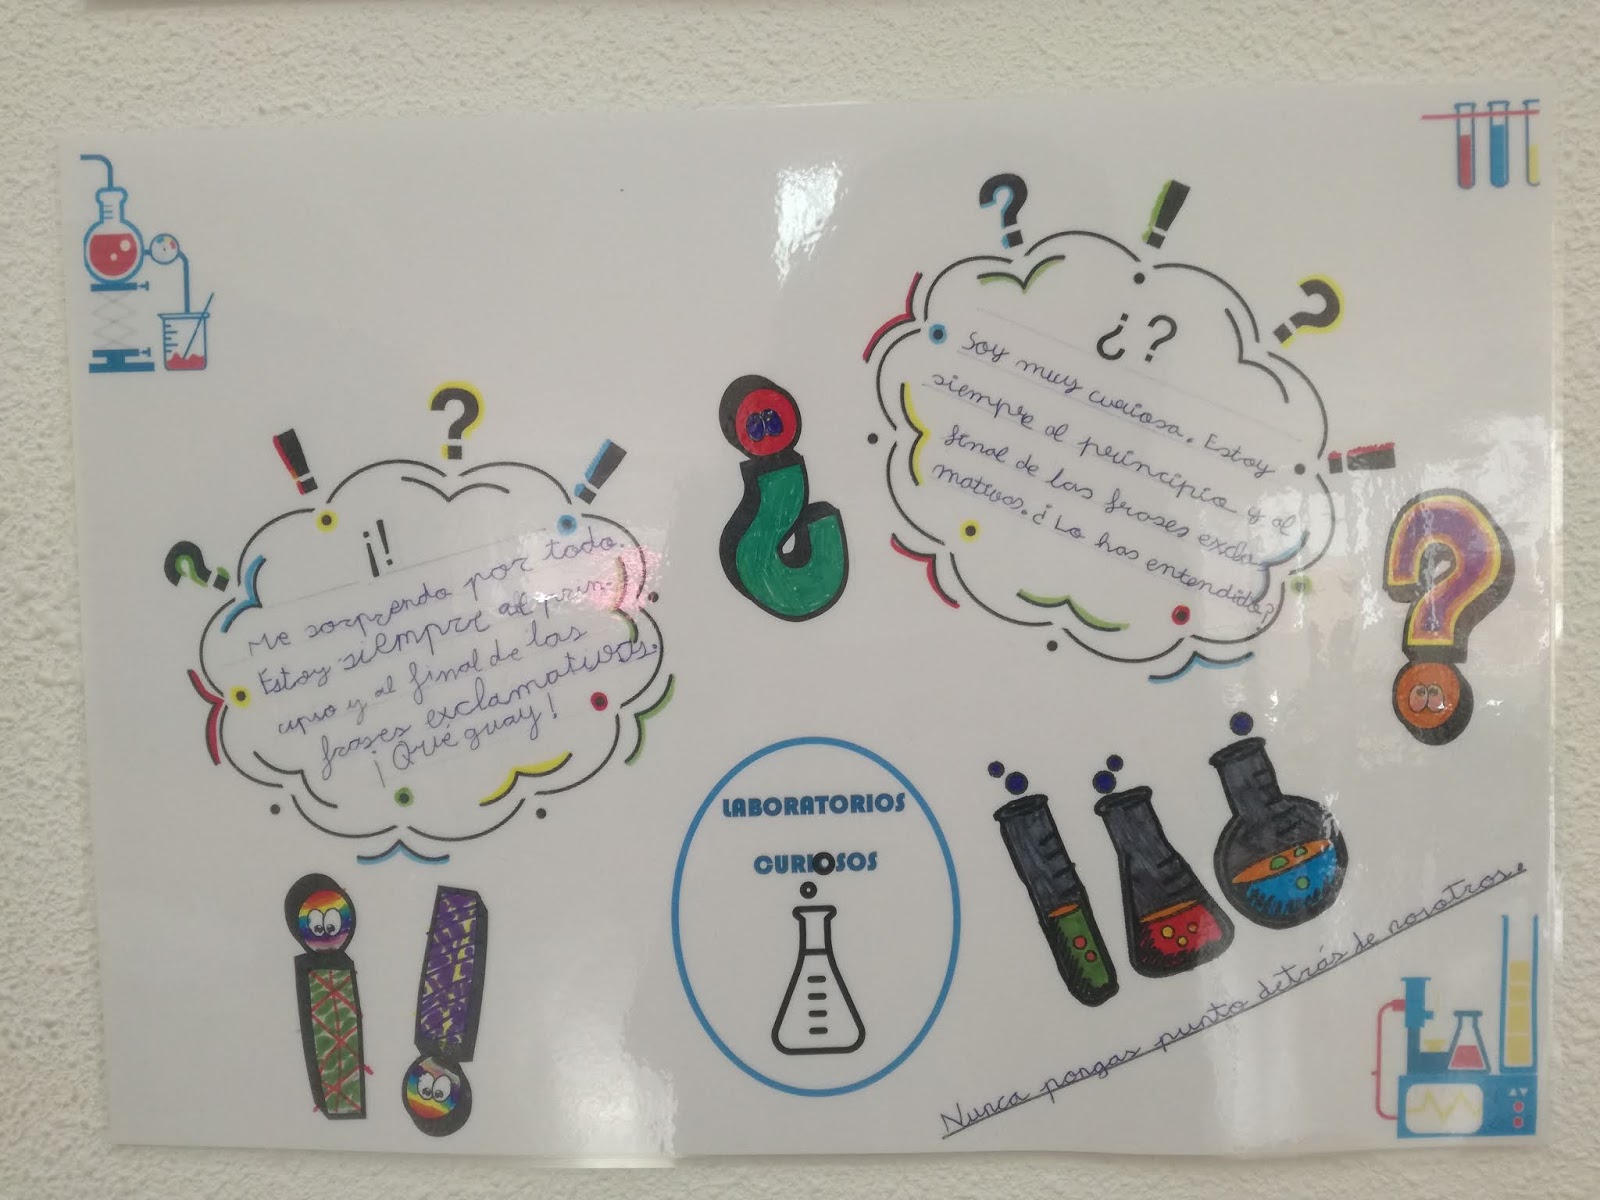 ¡!
Me sorprendo por todo.
Estoy siempre al prin-
cipio y al final de las
frases exclamativas.
¡Qué guay!
¿?
Soy muy curiosa. Estoy
siempre al principio y al
final de las frases excla-
mativas. ¿Lo has entendido?
LABORATORIOS
CURIOSOS
Nunca pongas punto detrás de nosotros.